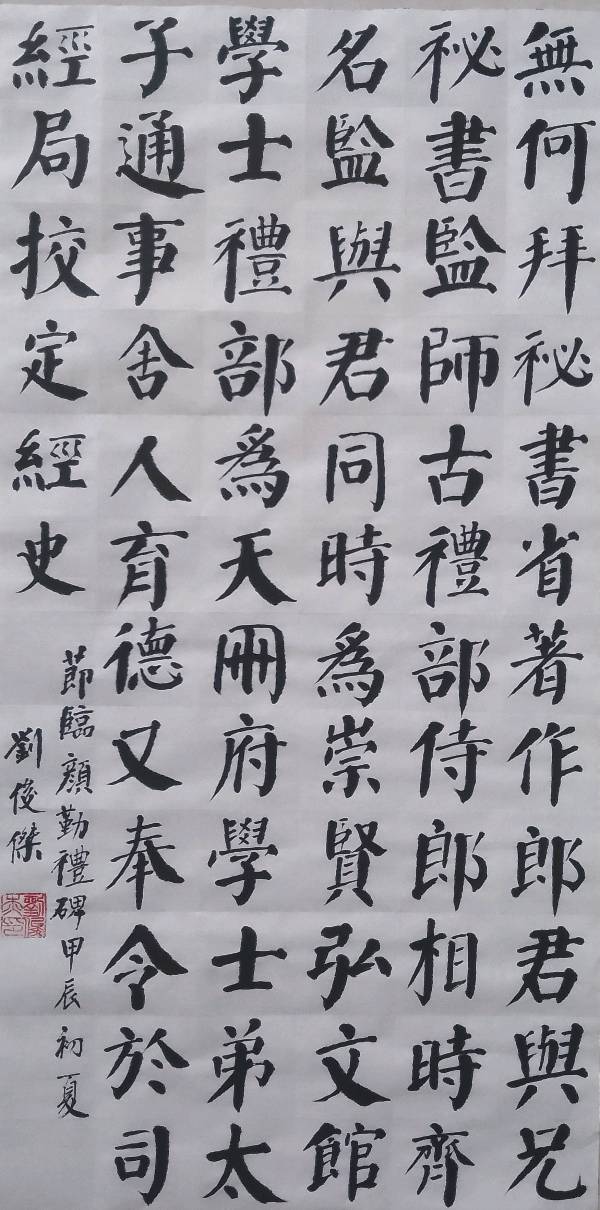 無何拜祕書省著作郎君與兄
祕書監師古禮部侍郎相時齊
名監與君同時為崇賢弘文館
學士禮部為天冊府學士弟太
子通事舍人育德又奉令於司
經局挍定經史
節臨顏勤禮碑甲辰初夏
劉俊傑